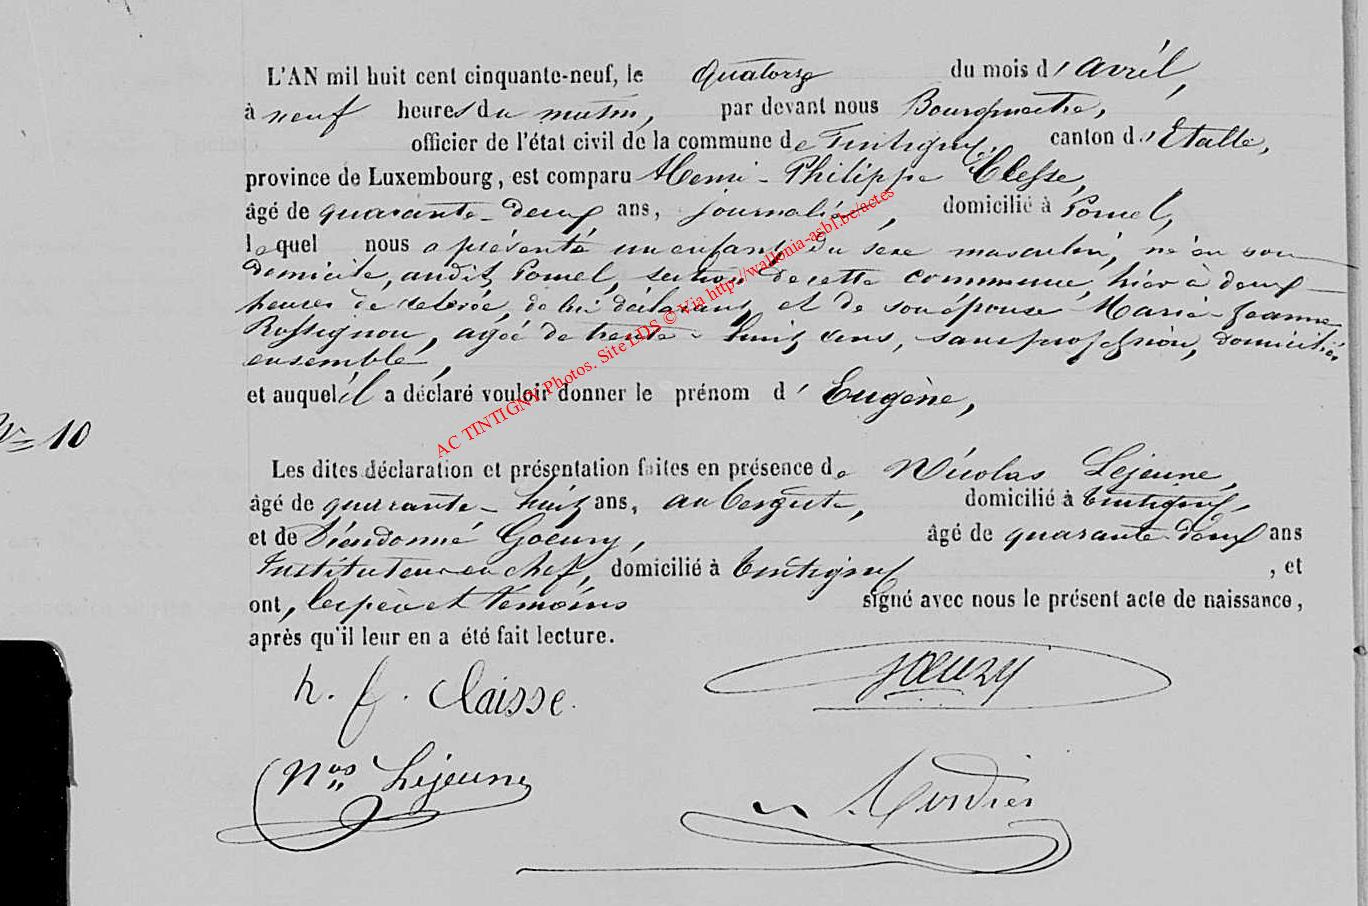 L'AN mil huit cent cinquante-neuf, le quatorze du mois d'avril,
à neuf heures du matin, par devant nous Bourgmestre,
officier de l'état civil de la commune de Tintigny, canton d'Etalle,
province de Luxembourg, est comparu Henri-Philippe Clesse,
âgé de quarante-deux ans, journalier, domicilié à Poncel,
lequel nous a présenté un enfant du sexe masculin, né en son
domicile, audit Poncel, section de cette commune, hier à deux
heures de relevée, de lui déclarant et de son épouse Marie-Jeanne
Rossignon, agée de trente-huit ans, sans profession, domiciliés
ensemble,
et auquel il a déclaré vouloir donner le prénom d'Eugène,
N° 10
Les dites déclaration et présentation faites en présence de Nicolas Lejeune,
âgé de quarante-huit ans, aubergiste, domicilié à Tintigny,
et de Dieudonné Goeury, âgé de quarante-deux ans
Instituteur en chef, domicilié à Tintigny, et
ont, les père et témoins signé avec nous le présent acte de naissance,
après qu'il leur en a été fait lecture.
h. f. Claisse. Goeury
Nas Lejeune
AC TINTIGNY Photos. Site LDS © Via http://wallonia-asbl.be/actes